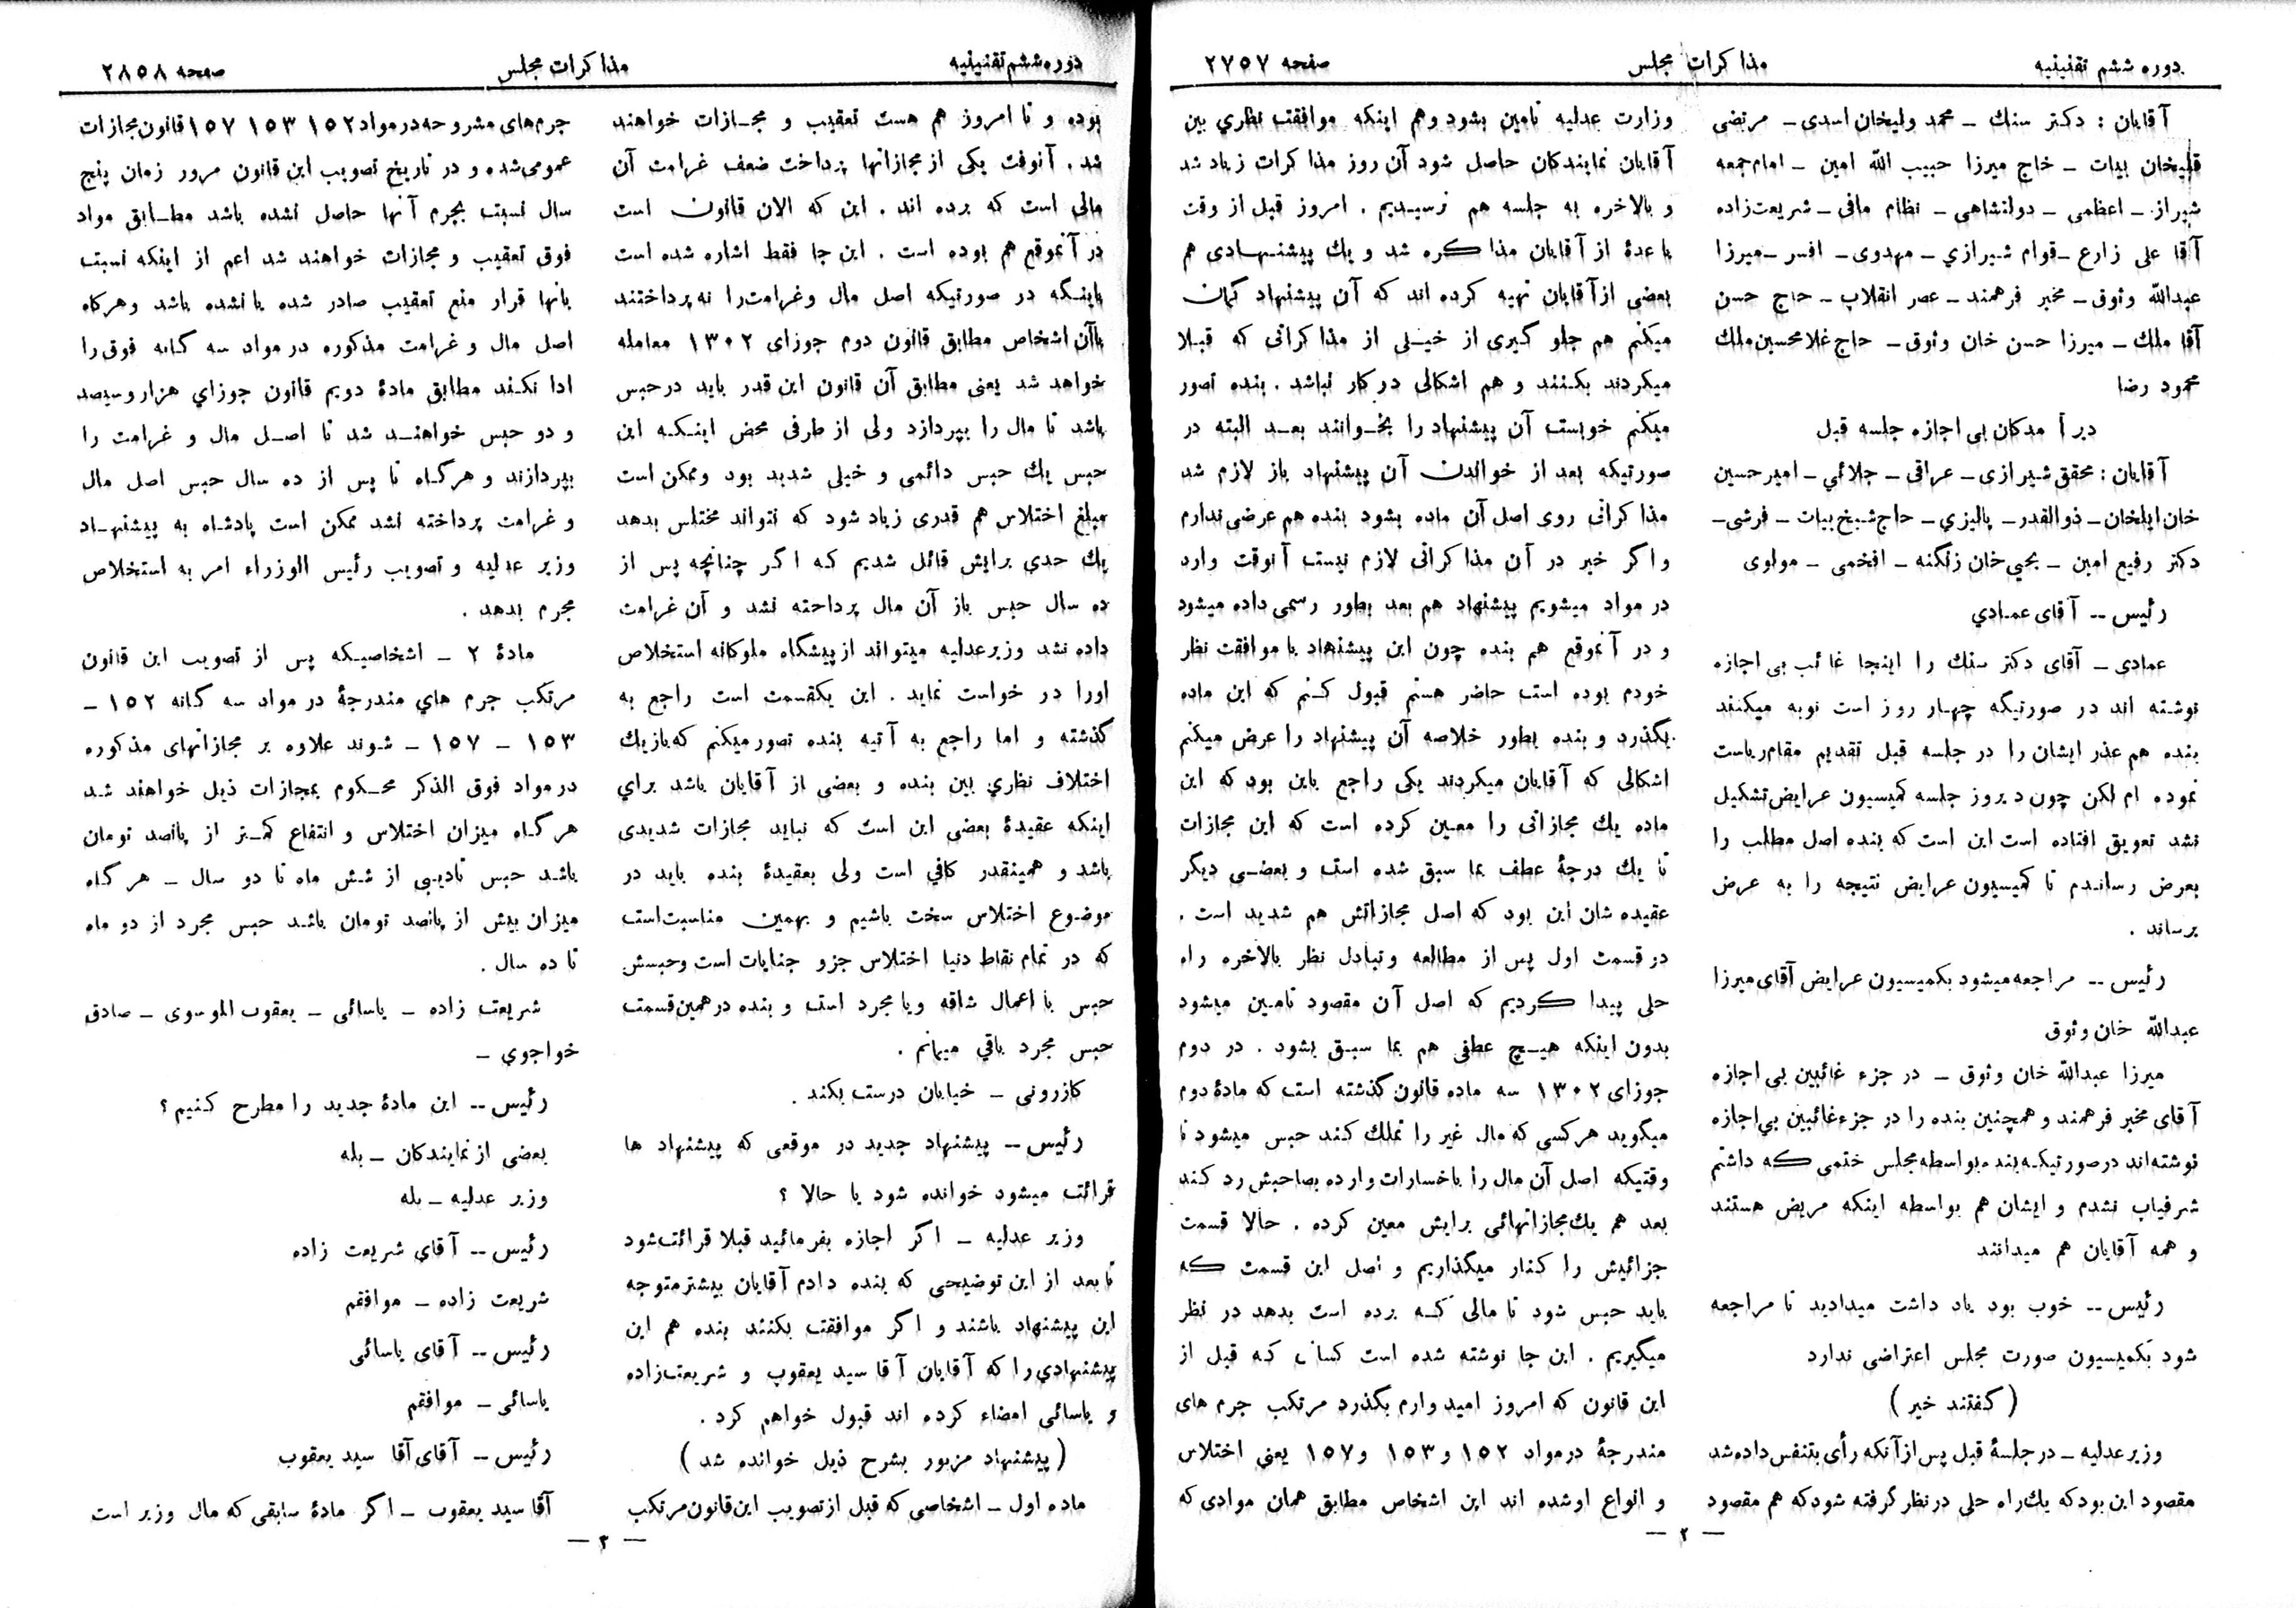 دوره ششم تقنینیه
مذاکرات مجلس
صفحه ۲۷۵۷
آقایان : دکتر سنك ـ محمد ولیخان اسدی ـ مرتضی
قلیخان بیات ـ حاج میرزا حبیب الله امین ـ امام جمعه
شیراز ـ اعظمی ـ دولتشاهی ـ نظام مافی ـ شریعت زاده
آقا علی زارع ـ قوام شیرازي ـ مهدوی ـ افسر ـ میرزا
عبدالله وثوق ـ مخبر فرهمند ـ عصر انقلاب ـ حاج حسن
آقا ملك ـ میرزا حسن خان وثوق ـ حاج غلامحسین ملك
محمود رضا
دیر آمدکان بی اجازه جلسه قبل
آقایان : محقق شیرازی ـ عراقی ـ جلائي ـ امیر حسین
خان ایلخان ـ ذوالقدر ـ پالیزي ـ حاج شیخ بیات ـ فرشی ـ
دکتر رفیع امین ـ یحیی خان زنگنه ـ افخمی ـ مولوی
رئیس -- آقای عمادي
عمادی ـ آقای دکتر سنك را اینجا غائب بی اجازه
نوشته اند در صورتیکه چهار روز است نوبه میکنند
بنده هم عذر ایشان را در جلسه قبل تقدیم مقام ریاست
نموده ام لکن چون دیروز جلسه کمیسیون عرایض تشکیل
نشد تعویق افتاده است این است که بنده اصل مطلب را
بعرض رساندم تا کمیسیون عرایض نتیجه را به عرض
برساند .
رئیس -- مراجعه میشود بکمیسیون عرایض آقای میرزا
عبدالله خان وثوق
میرزا عبدالله خان وثوق ـ در جزء غائبین بی اجازه
آقای مخبر فرهمند و همچنین بنده را در جزء غائبین بي اجازه
نوشته‌اند در صورتیکه بنده بواسطه مجلس ختمی که داشتم
شرفیاب نشدم و ایشان هم بواسطه اینکه مریض هستند
و همه آقایان هم میدانند
رئیس -- خوب بود یاد داشت میدادید تا مراجعه
شود بکمیسیون صورت مجلس اعتراضی ندارد
( گفتند خیر )
وزیر عدلیه ـ در جلسهٔ قبل پس از آنکه رأی بتنفس داده شد
مقصود این بود که یك راه حلی در نظر گرفته شود که هم مقصود
وزارت عدلیه تامین بشود و هم اینکه موافقت نظري بین
آقایان نمایندکان حاصل شود آن روز مذاکرات زیاد شد
و بالاخره به جلسه هم نرسیدیم . امروز قبل از وقت
با عدهٔ از آقایان مذاکره شد و یك پیشنهادی هم
بعضی از آقایان تهیه کرده اند که آن پیشنهاد گمان
میکنم هم جلو گیری از خیلی از مذاکراتی که قبلا
میکردند بکنند و هم اشکالی در کار نباشد . بنده تصور
میکنم خوبست آن پیشنهاد را بخوانند بعد البته در
صورتیکه بعد از خواندن آن پیشنهاد باز لازم شد
مذاکراتی روی اصل آن ماده بشود بنده هم عرضی ندارم
و اگر خیر در آن مذاکراتی لازم نیست آنوقت وارد
در مواد میشویم پیشنهاد هم بعد بطور رسمی داده میشود
و در آنموقع هم بنده چون این پیشنهاد با موافقت نظر
خودم بوده است حاضر هستم قبول کنم که این ماده
بگذرد و بنده بطور خلاصه آن پیشنهاد را عرض میکنم
اشکالی که آقایان میکردند یکی راجع باین بود که این
ماده یك مجازاتی را معین کرده است که این مجازات
تا یك درجهٔ عطف بما سبق شده است و بعضی دیگر
عقیده شان این بود که اصل مجازاتش هم شدید است .
در قسمت اول پس از مطالعه و تبادل نظر بالاخره راه
حلی پیدا کردیم که اصل آن مقصود تامین میشود
بدون اینکه هیچ عطفی هم بما سبق بشود . در دوم
جوزای ۱۳۰۲ سه ماده قانون گذشته است که مادهٔ دوم
میگوید هر کسی که مال غیر را تملك کند حبس میشود تا
وقتیکه اصل آن مال را با خسارات وارده بصاحبش رد کند
بعد هم یك مجازاتهائی برایش معین کرده . حالا قسمت
جزائیش را کنار میگذاریم و اصل این قسمت که
باید حبس شود تا مالی که برده است بدهد در نظر
میگیریم . این جا نوشته شده است کسانی که قبل از
این قانون که امروز امیدوارم بگذرد مرتکب جرم های
مندرجهٔ در مواد ۱۵۲ و ۱۵۳ و ۱۵۷ یعنی اختلاس
و انواع او شده اند این اشخاص مطابق همان موادی که
— ۲ —
دوره ششم تقنینیه
مذاکرات مجلس
صفحه ۲۸۵۸
بوده و تا امروز هم هست تعقیب و مجازات خواهند
شد . آنوقت یکی از مجازاتها پرداخت ضعف غرامت آن
مالی است که برده اند . این که الان قانون است
در آنموقع هم بوده است . این جا فقط اشاره شده است
باینکه در صورتیکه اصل مال و غرامت را نه پرداختند
باآن اشخاص مطابق قانون دوم جوزای ۱۳۰۲ معامله
خواهد شد یعنی مطابق آن قانون این قدر باید در حبس
باشد تا مال را بپردازد ولی از طرفی محض اینکه این
حبس یك حبس دائمی و خیلی شدید بود و ممکن است
مبلغ اختلاس هم قدری زیاد شود که نتواند مختلس بدهد
یك حدی برایش قائل شدیم که اگر چنانچه پس از
ده سال حبس باز آن مال پرداخته نشد و آن غرامت
داده نشد وزیر عدلیه میتواند از پیشگاه ملوکانه استخلاص
اورا در خواست نماید . این یکقسمت است راجع به
گذشته و اما راجع به آتیه بنده تصور میکنم که باز یك
اختلاف نظري بین بنده و بعضی از آقایان باشد براي
اینکه عقیدهٔ بعضی این است که نباید مجازات شدیدی
باشد و همینقدر کافي است ولی بعقیدهٔ بنده باید در
موضوع اختلاس سخت باشیم و بهمین مناسبت است
که در تمام نقاط دنیا اختلاس جزو جنایات است و حبسش
حبس با اعمال شاقه و یا مجرد است و بنده در همین قسمت
حبس مجرد باقي میمانم .
کازرونی ـ خیابان درست بکند .
رئیس -- پیشنهاد جدید در موقعی که پیشنهاد ها
قرائت میشود خوانده شود یا حالا ؟
وزیر عدلیه ـ اگر اجازه بفرمائید قبلا قرائت شود
تا بعد از این توضیحی که بنده دادم آقایان بیشتر متوجه
این پیشنهاد باشند و اگر موافقت بکنند بنده هم این
پیشنهادي را که آقایان آقا سید یعقوب و شریعت زاده
و یاسائی امضاء کرده اند قبول خواهم کرد .
( پیشنهاد مزبور بشرح ذیل خوانده شد )
ماده اول ـ اشخاصی که قبل از تصویب این قانون مرتکب
جرم‌های مشروحه در مواد ۱۵۲ ۱۵۳ ۱۵۷ قانون مجازات
عمومی شده و در تاریخ تصویب این قانون مرور زمان پنج
سال نسبت بجرم آنها حاصل نشده باشد مطابق مواد
فوق تعقیب و مجازات خواهند شد اعم از اینکه نسبت
بانها قرار منع تعقیب صادر شده یا نشده باشد و هرکاه
اصل مال و غرامت مذکوره در مواد سه گانه فوق را
ادا نکنند مطابق مادهٔ دویم قانون جوزاي هزار و سیصد
و دو حبس خواهند شد تا اصل مال و غرامت را
بپردازند و هرگاه تا پس از ده سال حبس اصل مال
و غرامت پرداخته نشد ممکن است پادشاه به پیشنهاد
وزیر عدلیه و تصویب رئیس الوزراء امر به استخلاص
مجرم بدهد .
مادهٔ ۲ ـ اشخاصیکه پس از تصویب این قانون
مرتکب جرم هاي مندرجهٔ در مواد سه گانه ۱۵۲ ـ
۱۵۳ ـ ۱۵۷ ـ شوند علاوه بر مجازاتهای مذکوره
در مواد فوق الذکر محکوم بمجازات ذیل خواهند شد
هر گاه میزان اختلاس و انتفاع کمتر از پانصد تومان
باشد حبس تادیبی از شش ماه تا دو سال ـ هر گاه
میزان بیش از پانصد تومان باشد حبس مجرد از دو ماه
تا ده سال .
شریعت زاده ـ یاسائی ـ یعقوب الموسوی ـ صادق
خواجوي ـ
رئیس -- این مادهٔ جدید را مطرح کنیم ؟
بعضی از نمایندکان ـ بله
وزیر عدلیه ـ بله
رئیس -- آقاي شریعت زاده
شریعت زاده ـ موافقم
رئیس -- آقای یاسائی
یاسائی ـ موافقم
رئیس -- آقای آقا سید یعقوب
آقا سید یعقوب ـ اگر مادهٔ سابقی که مال وزیر است
— ۳ —